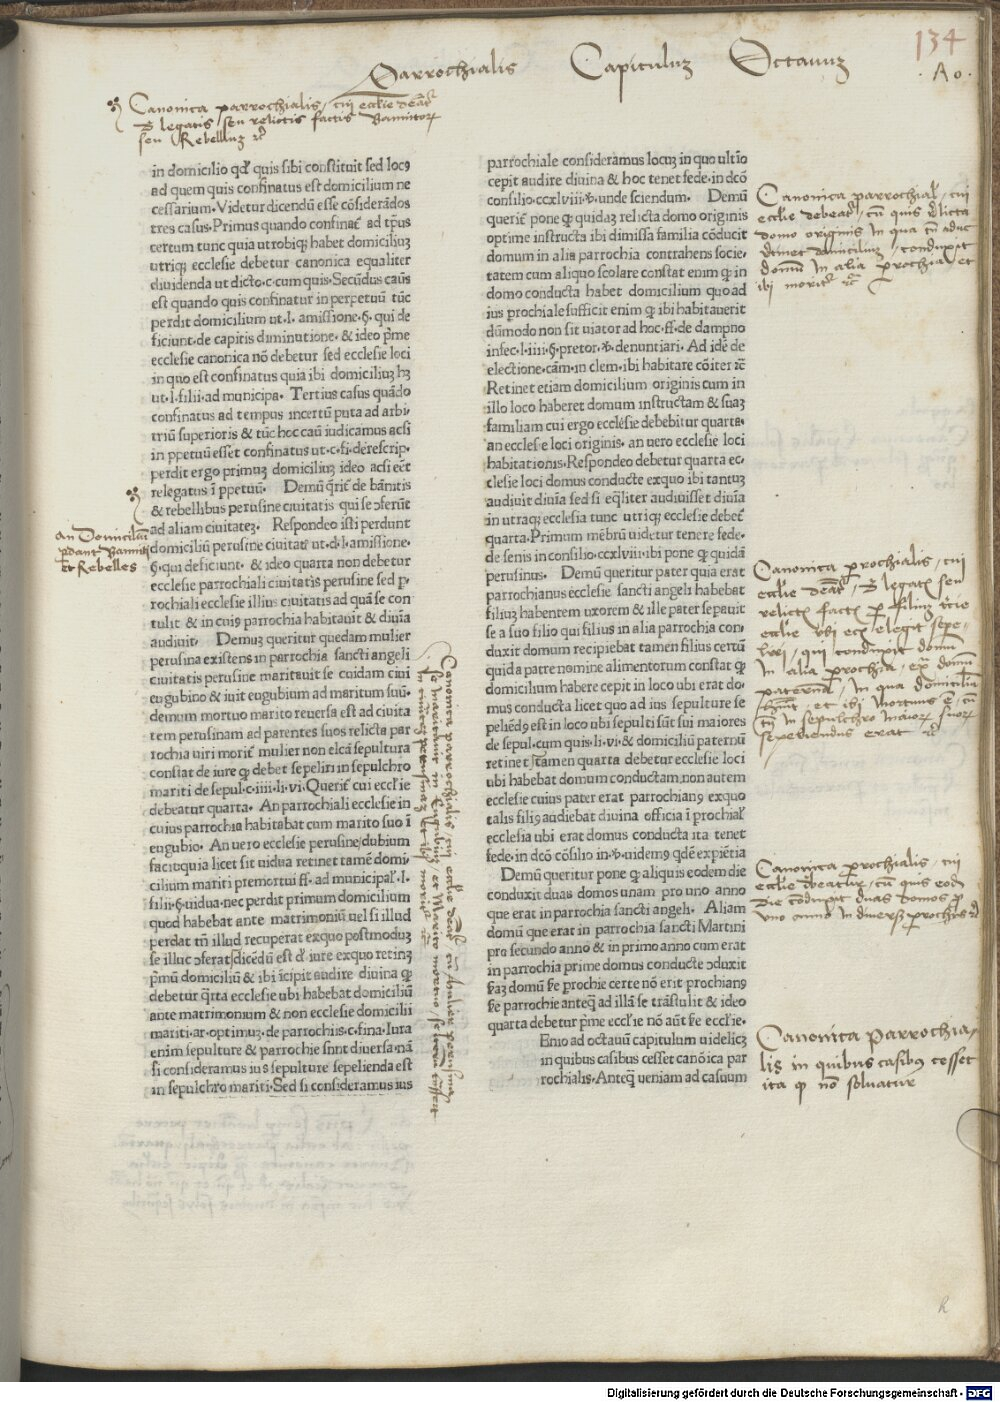 134
A 0.
Parrochialis Capitulum Octauum
Canonica parrochialis, cui ecclie
legatis seu relictis factis
seu Rebelliuz
in domicilio qđ quis sibi constituit sed locꝯ
ad quem quis confinatus est domicilium ne
cessarium. Videtur dicendū esse cōsiderādos
tres casus. Primus quando confinat̄ ad tp̄us
certum tunc quia utrobiqꝫ habet domiciliuꝫ
utriqꝫ ecclesie debetur canonica equaliter
diuidenda ut dicto.c.cum quis. Secūdus caūs
est quando quis confinatur in perpetuū tūc
perdit domicilium ut.l.amissione.§.qui de
ficiunt.de capitis diminutione. & ideo pr̄me
ecclesie canonica nō debetur sed ecclesie loci
in quo est confinatus quia ibi domiciliuꝫ hꝫ
ut.l.filii.ad municipa. Tertius casus quādo
confinatus ad tempus incertū puta ad arbi
triū superioris & tūc hoc caū iudicamus acsi
in ppetuū esset confinatus ut.c.fi.de rescrip.
perdit ergo primuꝫ domiciliuꝫ ideo acsi eēt
relegatus ī ppetuū. Demū q̄rit̄ de bānitis
& rebellibus perusine ciuitatis qui se ↄferūt
ad aliam ciuitateꝫ. Respondeo isti perdunt
domiciliū perusine ciuitatis ut.d.l.amissione.
§.qui deficiunt. & ideo quarta non debetur
ecclesie parrochiali ciuitatis perusine sed p̱
rochiali ecclesie illius ciuitatis ad quā se con
tulit & in cuiꝯ parrochia habitauit & diuīa
audiuit. Demuꝫ queritur quedam mulier
perusina existens in parrochia sancti angeli
ciuitatis perusine maritauit se cuidam ciui
eugubino & iuit eugubium ad maritum suū.
demum mortuo marito reuersa est ad ciuita
tem perusinam ad parentes suos relicta par
rochia uiri morit̄ mulier non elcā sepultura
constat de iure ꝙ debet sepeliri in sepulchro
mariti de sepul.c.iiii.li.vi. Querit̄ cui eccl'ie
debeatur quarta. An parrochiali ecclesie in
cuius parrochia habitabat cum marito suo ī
eugubio. An uero ecclesie perusine/dubium
facit quia licet sit uidua retinet tamē domi
cilium mariti premortui ff.ad municipal'.l.
filii.§.uidua.nec perdit primum domicilium
quod habebat ante matrimoniū uel si illud
perdat tn̄ illud recuperat exquo postmoduꝫ
se illuc ↄferat/dicēdū est đ.iure exquo retinꝫ
p̄mū domiciliū & ibi īcipit audire diuina ꝙ
debetur q̄rta ecclesie ubi habebat domiciliū
ante matrimonium & non ecclesie domicilii
mariti.ar.optimuꝫ.de parrochiis.c.fina. Iura
enim sepulture & parrochie snnt diuersa.nā
si consideramus ius sepulture sepelienda est
in sepulchro mariti. Sed si consideramus ius
an Domicilium
perdant Banniti
et Rebelles
parrochiale consideramus locuꝫ in quo ultīo
cepit audire diuina & hoc tenet fede.in dcō
consilio.ccxlviii.ꝟ.unde sciendum. Demū
querit̄ pone ꝙ quidaꝫ relicta domo originis
optime instructa ibi dimissa familia cōducit
domum in alia parrochia contrahens socie-
tatem cum aliquo scolare constat enim ꝙ in
domo conducta habet domicilium quo ad
ius prochiale sufficit enim ꝙ ibi habitauerit
dūmodo non sit uiator ad hoc.ff.de dampno
infec.l.iiii.§.pretor.ꝟ.denuntiari. Ad idē de
electione.cām.in clem.ibi habitare cōiter ic̄
Retinet etiam domicilium originis cum in
illo loco haberet domum instructam & suaꝫ
familiam cui ergo ecclesie debebitur quarta.
an ecclesie loci originis.an uero ecclesie loci
habitationis. Respondeo debetur quarta ec.
clesie loci domus conducte exquo ibi tantuꝫ
audiuit diuīa sed si eq̄liter audiuisset diuīa
in utraqꝫ ecclesia tunc utriqꝫ ecclesie debet̄
quarta. Primum mēbrū uidetur tenere fede.
de senis in consilio.ccxlviii.ibi pone ꝙ quidā
perusinus. Demū queritur pater quia erat
parrochianus ecclesie sancti angeli habebat
filiuꝫ habentem uxorem & ille pater sepauit
se a suo filio qui filius in alia parrochia con-
duxit domum recipiebat tamen filius certū
quid a patre nomine alimentorum constat ꝙ
domicilium habere cepit in loco ubi erat do.
mus conducta licet quo ad ius sepulture se
peliēdꝯ est in loco ubi sepulti sūt sui maiores
de sepul.cum quis.li.vi.& domiciliū paternū
retinet/tamen quarta debetur ecclesie loci
ubi habebat domum conductam.non autem
ecclesie cuius pater erat parrochianꝯ exquo
talis filiꝯ audiebat diuina officia ī prochial'
ecclesia ubi erat domus conducta ita tenet
fede.in dcō cōsilio in.ꝟ.uidemꝯ qđē expiētia
Demū queritur pone ꝙ aliquis eodem die
conduxit duas domos unam pro uno anno
que erat in parrochia sancti angeli. Aliam
domū que erat in parrochia sancti Martini
pro secundo anno & in primo anno cum erat
in parrochia prime domus conducte ↄduxit
domū prochie certe nō erit prochianꝯ
parrochie anteqꝫ ad illā se trāstulit & ideo
quarta debetur p̄me eccl'ie nō aūt eccl'ie.
Enio ad octauū capitulum uidelicꝫ
in quibus casibus cesset canōica par
rochialis. Anteqꝫ ueniam ad casuum
Canonica parrochial', cui
ecclie debeatur, cū quis relicta
domo originis in qua tn̄ adhuc
retinet domicilium, conduxit
domū in alia prochia, et
ibi morit̄ ꝛc̄
Canonica prochialis, cui
ecclie
relictis factis
elegit
qui conduxit domū
in alia prochia, domū
paternā, in qua domicilium
et ibi mortuus ē, cū
tn̄ in sepulchro maiorū suorū
sepeliendus erat ꝛc̄
Canonica prochialis, cui
ecclie debeatur, cū quis eodem
die conduxit duas domos p
uno anno in diuersis prochiis
Canonica parrochia-
lis in quibus casibus cesset
ita ꝙ nō soluatur
h
Digitalisierung gefördert durch die Deutsche Forschungsgemeinschaft - DFG